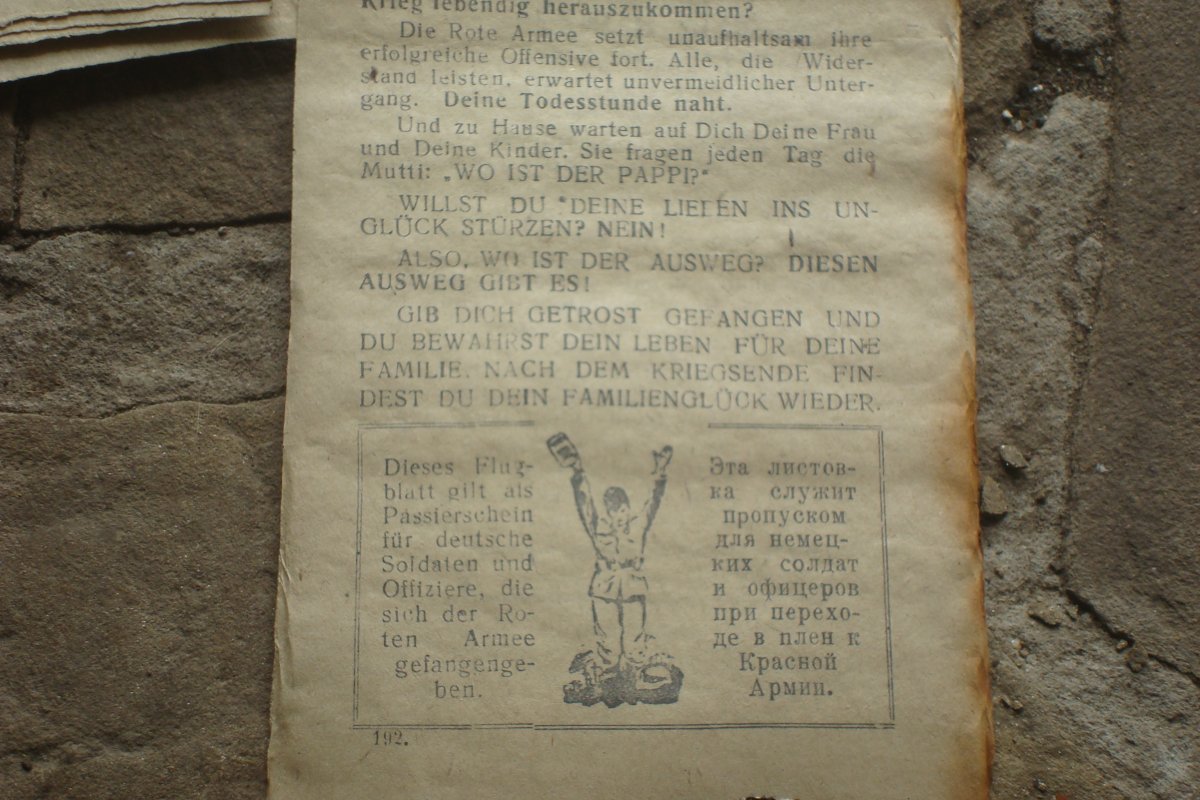 Krieg lebendig herauszukommen?
Die Rote Armee setzt unaufhaltsam ihre
erfolgreiche Offensive fort. Alle, die Wider-
stand leisten, erwartet unvermeidlicher Unter-
gang. Deine Todesstunde naht.
Und zu Hause warten auf Dich Deine Frau
und Deine Kinder. Sie fragen jeden Tag die
Mutti: „WO IST DER PAPPI?“
WILLST DU DEINE LIEBEN INS UN-
GLÜCK STÜRZEN? NEIN!
ALSO, WO IST DER AUSWEG? DIESEN
AUSWEG GIBT ES!
GIB DICH GETROST GEFANGEN UND
DU BEWAHRST DEIN LEBEN FÜR DEINE
FAMILIE. NACH DEM KRIEGSENDE FIN-
DEST DU DEIN FAMILIENGLÜCK WIEDER.
Dieses Flug-
blatt gilt als
Passierschein
für deutsche
Soldaten und
Offiziere, die
sich der Ro-
ten Armee
gefangenge-
ben.
Эта листов-
ка служит
пропуском
для немец-
ких солдат
и офицеров
при перехо-
де в плен к
Красной
Армии.
192.